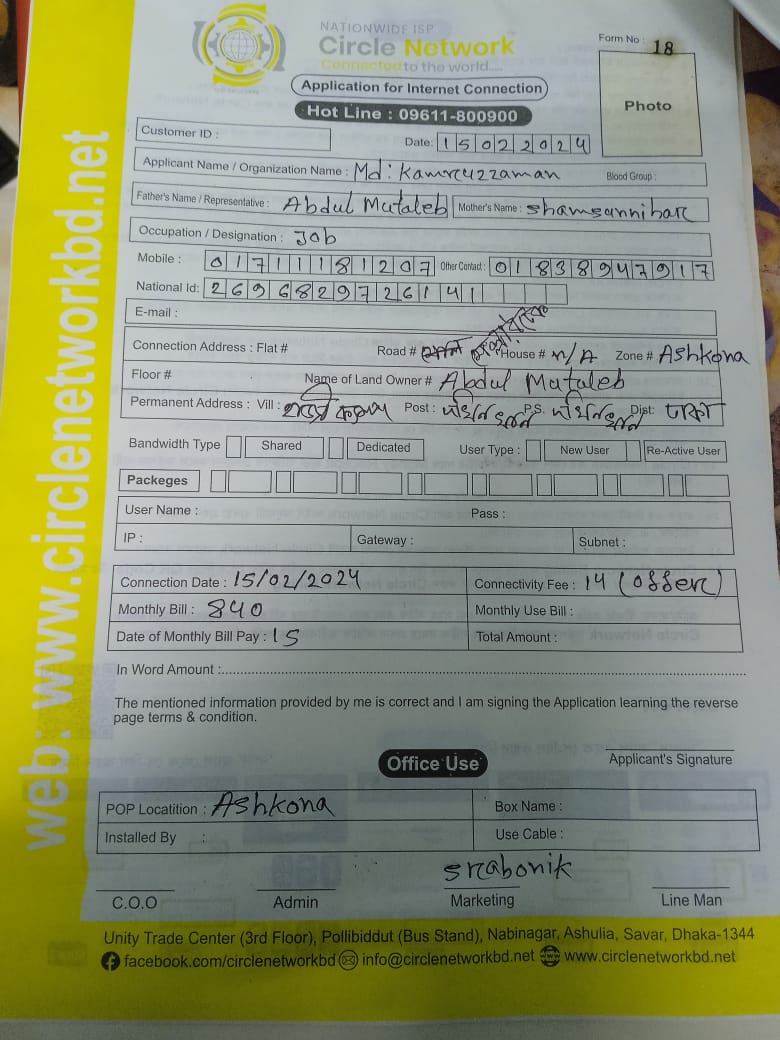 NATIONWIDE ISP
Circle Network
Connected to the world....
Form No : 18
Application for Internet Connection
Hot Line : 09611-800900
Photo
Customer ID :
Date: 15022024
Applicant Name / Organization Name : Md: Kamruzzaman Blood Group :
Father's Name / Representative : Abdul Mutaleb Mother's Name : Shamsunnihar
Occupation / Designation : Job
Mobile : 01711181207 Other Contact : 01838947917
National Id: 2696829726141
E-mail :
Connection Address : Flat # Road # House # N/A Zone # Ashkona
Floor # Name of Land Owner # Abdul Mutaleb
Permanent Address : Vill : Post : P.S. Dist: ঢাকা
Bandwidth Type Shared Dedicated User Type : New User Re-Active User
Packeges
User Name : Pass :
IP : Gateway : Subnet :
Connection Date : 15/02/2024 Connectivity Fee : 14 (offer)
Monthly Bill : 840 Monthly Use Bill :
Date of Monthly Bill Pay : 15 Total Amount :
In Word Amount :
The mentioned information provided by me is correct and I am signing the Application learning the reverse
page terms & condition.
Applicant's Signature
Office Use
POP Locatition : Ashkona Box Name :
Installed By : Use Cable :
srabonik
C.O.O Admin Marketing Line Man
Unity Trade Center (3rd Floor), Pollibiddut (Bus Stand), Nabinagar, Ashulia, Savar, Dhaka-1344
facebook.com/circlenetworkbd info@circlenetworkbd.net www.circlenetworkbd.net
web: www.circlenetworkbd.net